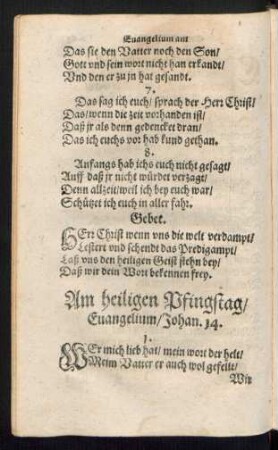 Euangelium am
Das sie den Vatter noch den Son/
Gott vnd sein wort nicht han erkandt/
Vnd den er zu jn hat gesandt.
7.
Das sag ich euch/ sprach der Herr Christ/
Das/ wenn die zeit vorhanden ist/
Daß jr als denn gedencket dran/
Das ich euchs vor hab kund gethan.
8.
Anfangs hab ichs euch nicht gesagt/
Auff daß jr nicht würdet verzagt/
Denn allzeit/ weil ich bey euch war/
Schützet ich euch in aller fahr.
Gebet.
HErr Christ wenn vns die welt verdampt/
Lestert vnd schendt das Predigampt/
Laß vns den heiligen Geist stehn bey/
Daß wir dein Wort bekennen frey.
Am heiligen Pfingstag/
Euangelium/ Johan. 14.
1.
WEr mich lieb hat/ mein wort der helt/
Meim Vatter er auch wol gefellt/
Wir